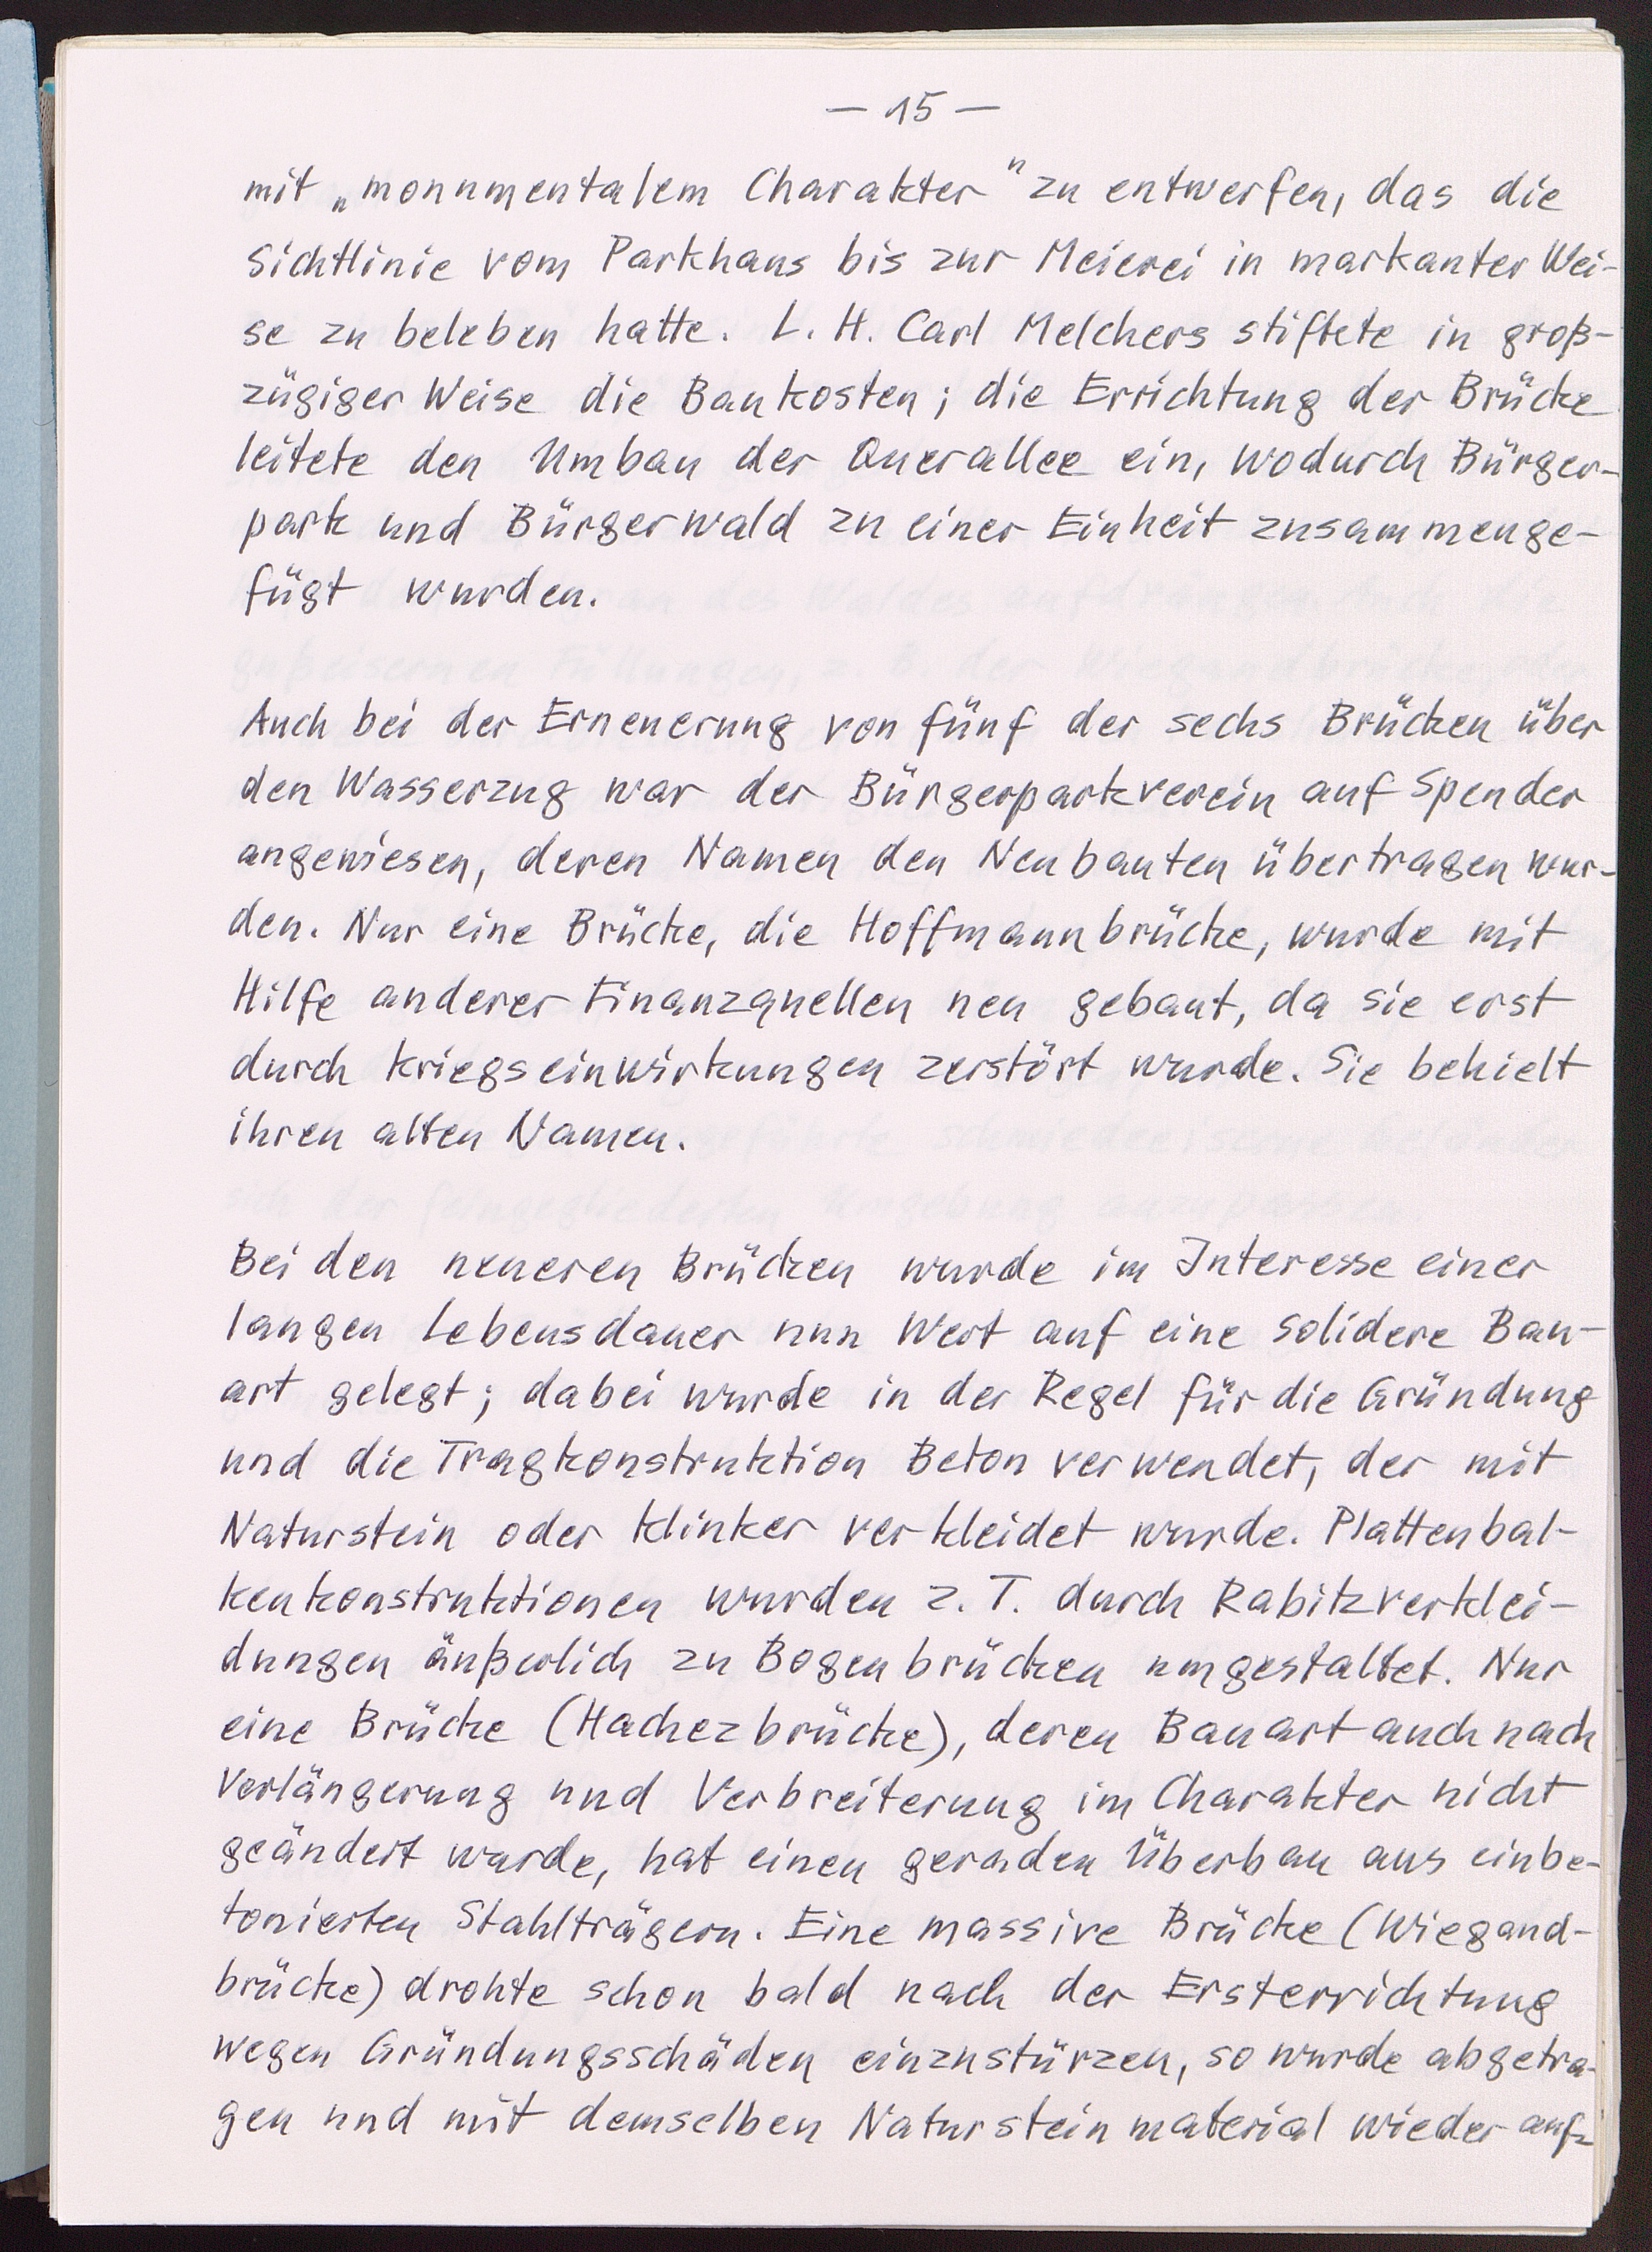 — 15 —
mit „monumentalem Charakter" zu entwerfen, das die
Sichtlinie vom Parkhaus bis zur Meierei in markanter Wei-
se zu beleben hatte. L. H. Carl Melchers stiftete in groß-
zügiger Weise die Baukosten; die Errichtung der Brücke
leitete den Umbau der Querallee ein, wodurch Bürger-
park und Bürgerwald zu einer Einheit zusammenge-
fügt wurden.
Auch bei der Erneuerung von fünf der sechs Brücken über
den Wasserzug war der Bürgerparkverein auf Spender
angewiesen, deren Namen den Neubauten übertragen wur-
den. Nur eine Brücke, die Hoffmannbrücke, wurde mit
Hilfe anderer Finanzquellen neu gebaut, da sie erst
durch Kriegseinwirkungen zerstört wurde. Sie behielt
ihren alten Namen.
Bei den neueren Brücken wurde im Interesse einer
langen Lebensdauer nun Wert auf eine solidere Bau-
art gelegt; dabei wurde in der Regel für die Gründung
und die Tragkonstruktion Beton verwendet, der mit
Naturstein oder Klinker verkleidet wurde. Plattenbal-
kenkonstruktionen wurden z. T. durch Rabitzverklei-
dungen äußerlich zu Bogenbrücken umgestaltet. Nur
eine Brücke (Hachezbrücke), deren Bauart auch nach
Verlängerung und Verbreiterung im Charakter nicht
geändert wurde, hat einen geraden Überbau aus einbe-
tonierten Stahlträgern. Eine massive Brücke (Wiegand-
brücke) drohte schon bald nach der Ersterrichtung
wegen Gründungsschäden einzustürzen, so wurde abgetra-
gen und mit demselben Natursteinmaterial wieder auf-